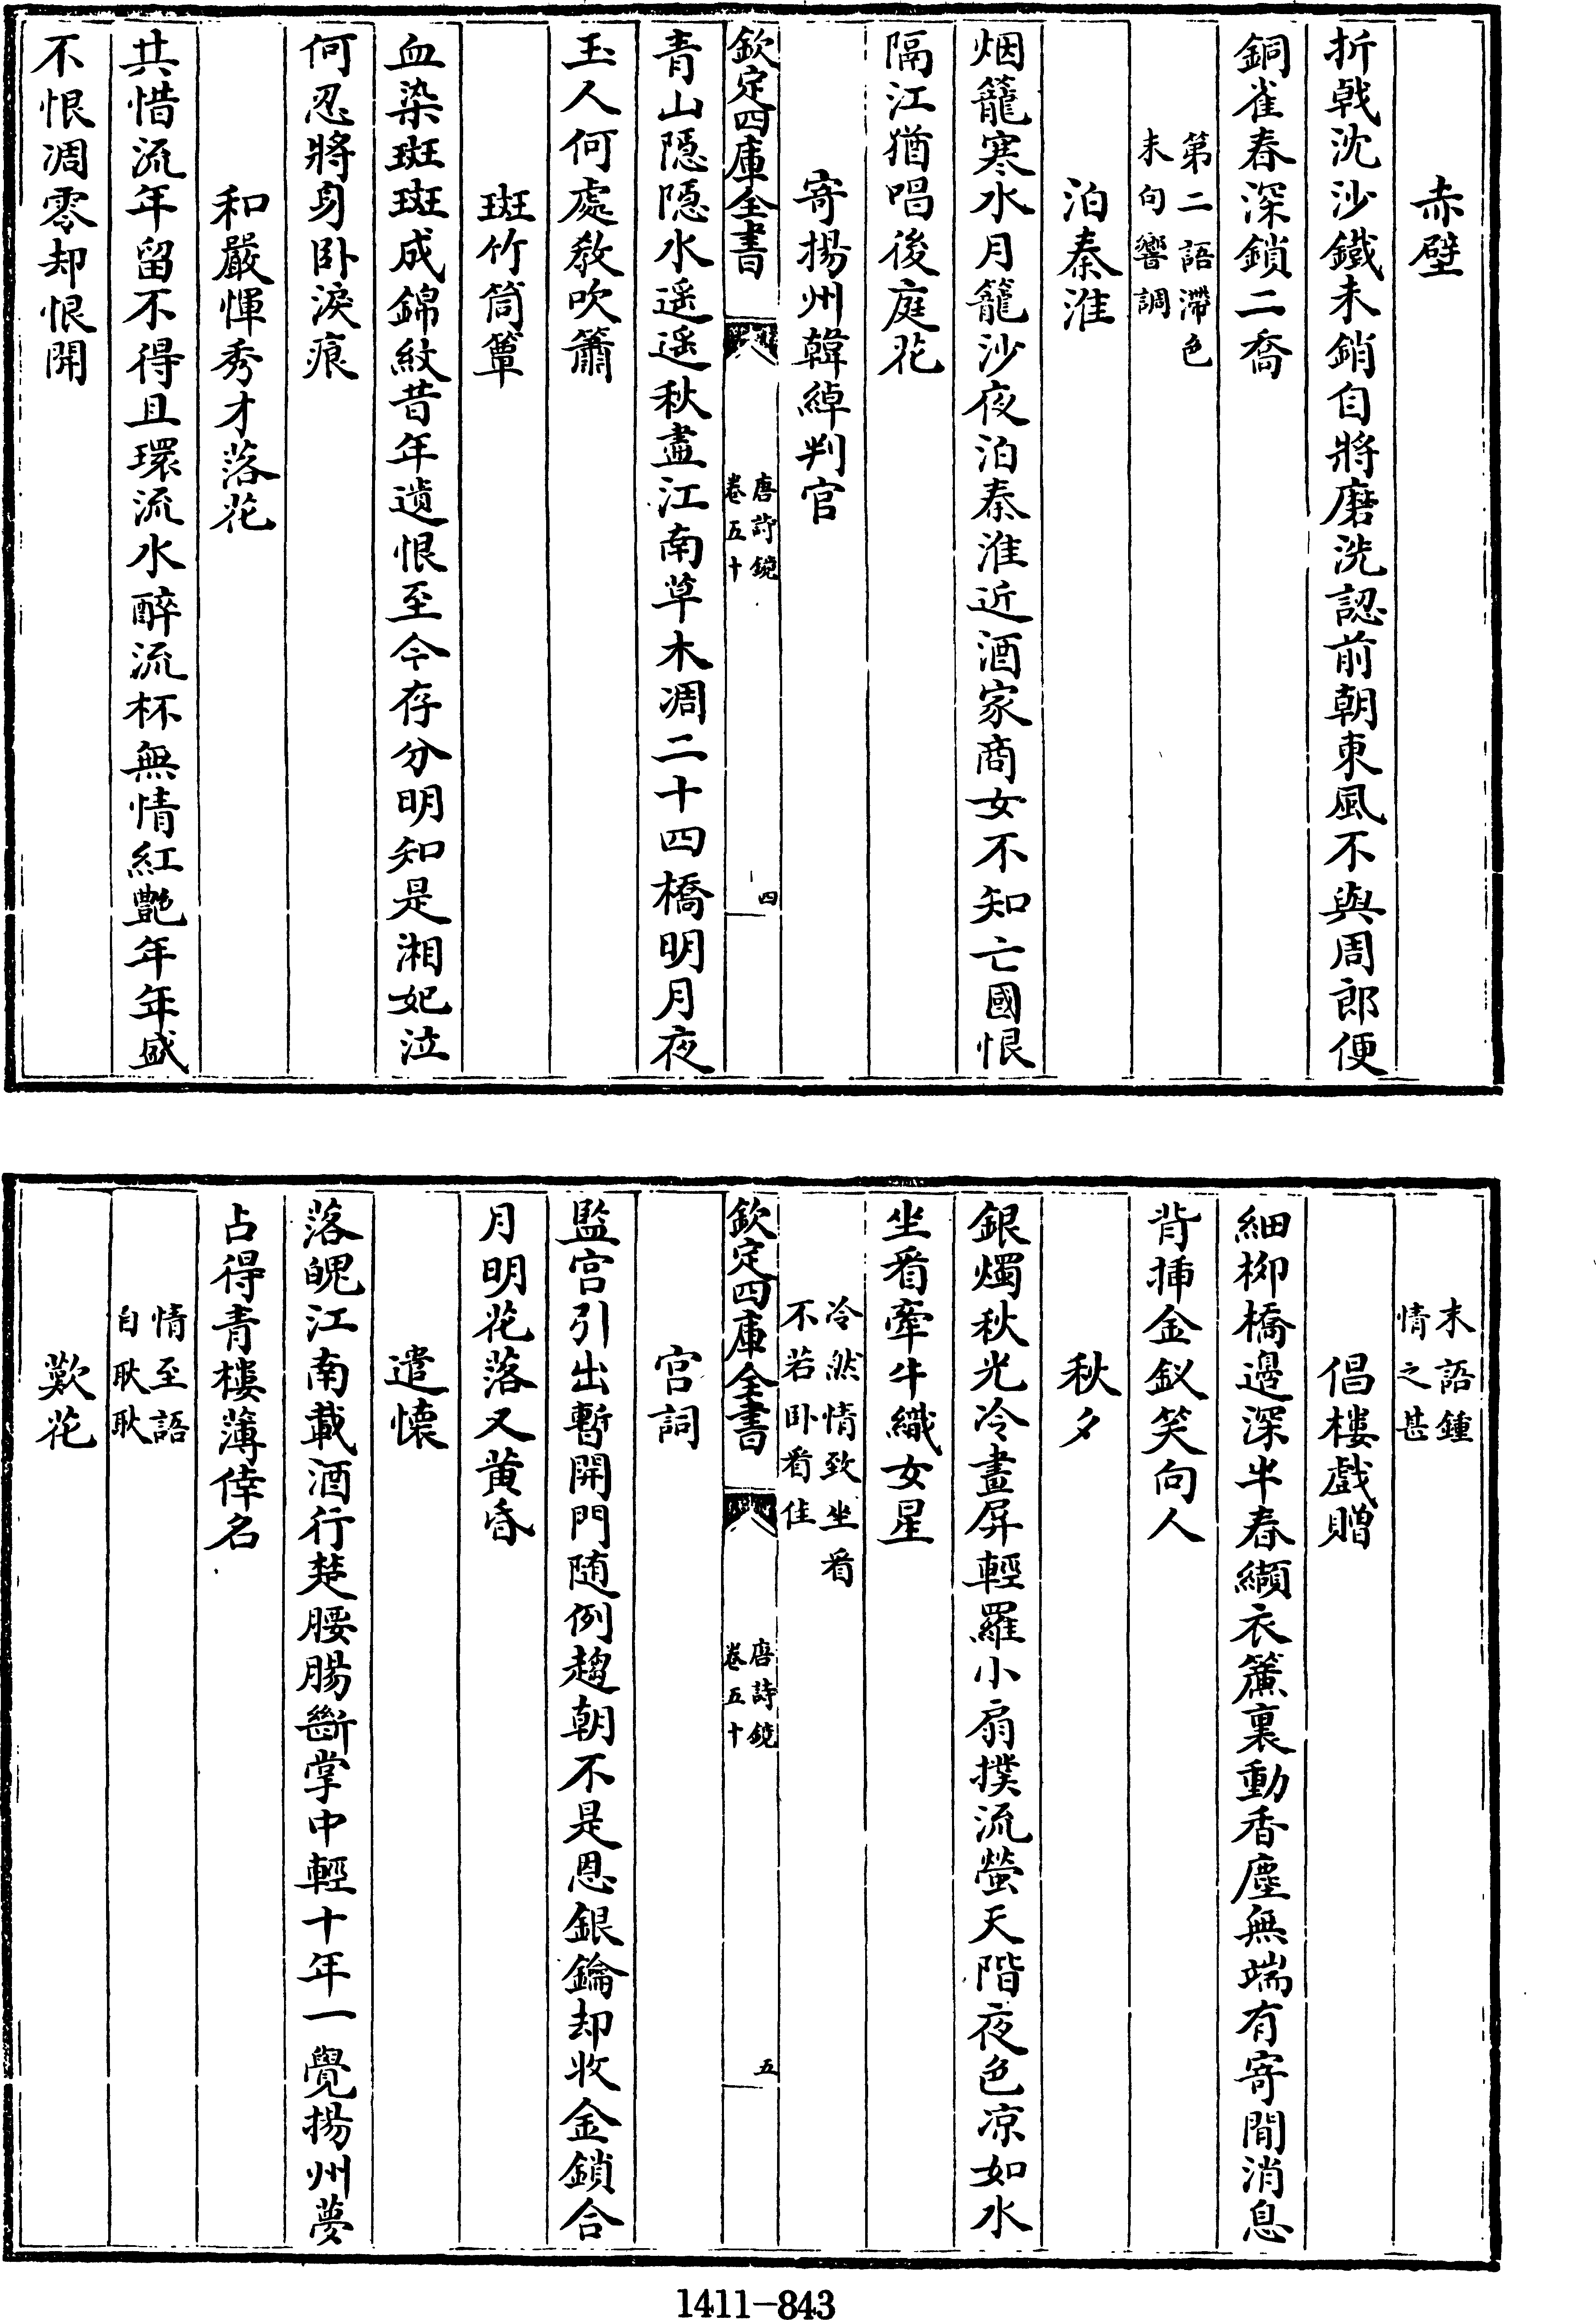 赤壁
折戟沈沙鐵未銷自將磨洗認前朝東風不與周郎便
銅雀春深鎖二喬
第二語滯色
末句響調
泊秦淮
烟籠寒水月籠沙夜泊秦淮近酒家商女不知亡國恨
隔江猶唱後庭花
寄揚州韓綽判官
欽定四庫全書
唐詩鏡
卷五十
四
青山隱隱水遥遥秋盡江南草木凋二十四橋明月夜
玉人何處教吹簫
斑竹筒簟
血染斑斑成錦紋昔年遺恨至今存分明知是湘妃泣
何忍將身卧淚痕
和嚴惲秀才落花
共惜流年留不得且環流水醉流杯無情紅艷年年盛
不恨凋零却恨開
末語鍾
情之甚
倡樓戲贈
細柳橋邊深半春纈衣簾裏動香塵無端有寄閒消息
背插金釵笑向人
秋夕
銀燭秋光冷畫屏輕羅小扇撲流螢天階夜色凉如水
坐看牽牛織女星
冷然情致坐看
不若卧看佳
欽定四庫全書
唐詩鏡
卷五十
五
宫詞
監宫引出暫開門随例趨朝不是恩銀鑰却收金鎖合
月明花落又黄昏
遣懷
落魄江南載酒行楚腰腸斷掌中輕十年一覺揚州夢
占得青樓薄倖名
情至語
自耿耿
歎花
1411-843